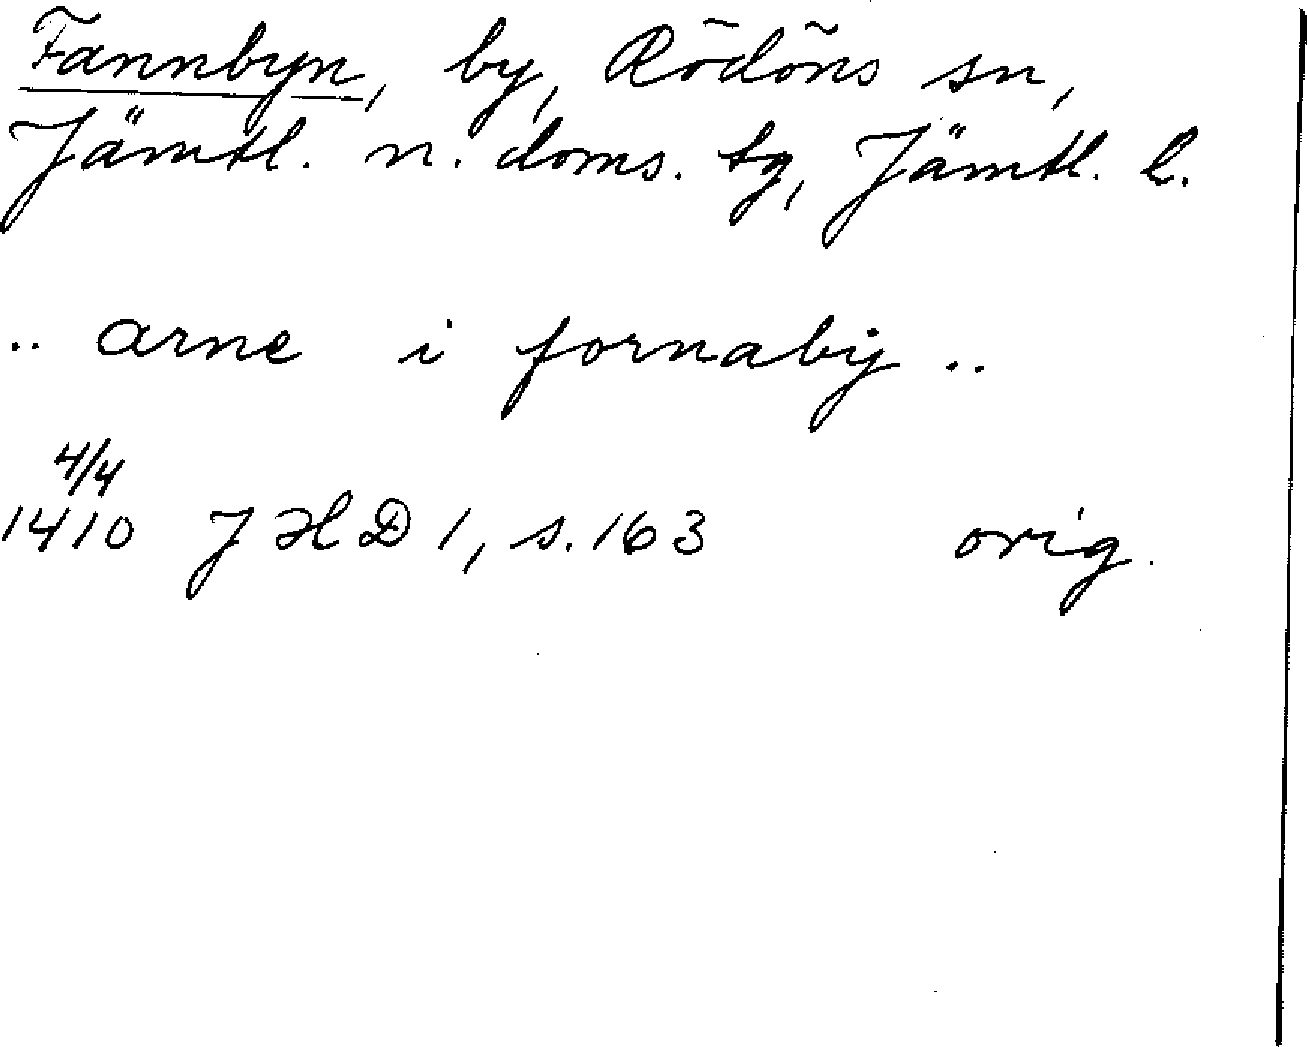 Fannbyn, by, Rödöns sn,
Jämtl. n. doms. tg, Jämtl. l.
.. arne i fornabÿ ..
4/4
1410 JHD 1, s. 163 orig.